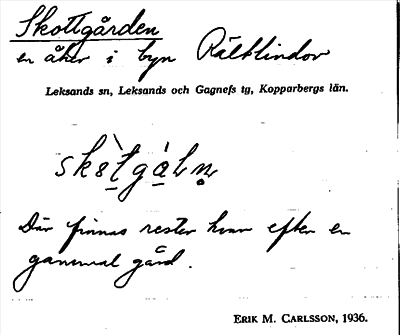 Skottgården
en åker i byn Rältlindor
Leksands sn, Leksands och Gagnefs tg, Kopparbergs län.
Där finnas rester kvar efter en
gammal gård.
ERIK M. CARLSSON, 1936.